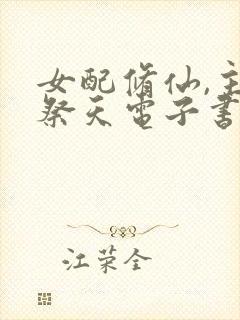 女配脩仙,主
祭天電子書
江荣全